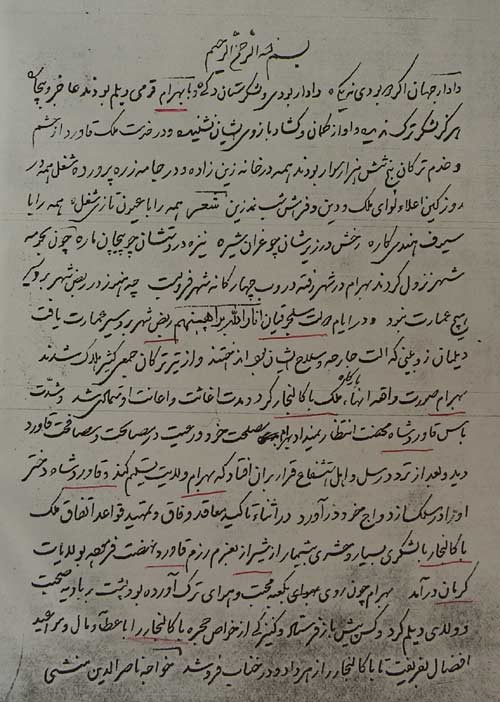 بسم الله الرحمن الرحیم
دادار جهان اگر بودی و دادار بودی و لشکرستان و با بهرام قومی دیلم بودند عاجز
هرگز لشکر ترک ندیده و آواز کمان و کشاد بازوی ایشان نشنیده و در خدمت ملک قاورد از حشم
و خدم ترکان پنج شش هزار سوار بودند همه در خانه زین زاده و در جامه زره پرورده شغل همه در
روز کین اعلاء لوای ملک و دین و فرش شب نمد زین شعر همه رایا عیون تازی شغل همه رایا
سیوف هندی کاره رخش در زیرشان چو غران شیره نیزه در دستشان چو پیچان ماره چون بحومه
شهر نزول کردند بهرام در شهر رفته دروب چهارگانه شهر فرو بست چه هنوز در ربض شهر بردسیر
هیچ عمارت نبود و در ایام دولت سلجوقیان انار الله براهینهم ربض شهر بردسیر عمارت یافت
دیلمان زوبینی که آلت جارحه و سلاح ایشان بود انداختند و از تیر ترکان جمعی کثیر هلاک شدند
بهرام صورت واقعه انهاء بارگاه ملک باکالنجار کرد مدت اغاثت و اعانت او متمادی شد و شدت
باس قاورد شاه محنت انتظار بهرام مصلحت خود و رعیت در مصالحت و مصافحت قاورد
دید و بعد از تردد رسل و اهل استشفاع قرار بر آن افتاد که بهرام ولایت تسلیم کند و قاورد شاه دختر
او را در سلک ازدواج خود در آورد در اثناء تاکید معاقد وفاق و تمهید قواعد اتفاق ملک
باکالنجار با لشکری بسیار و حشری بیشمار از شیراز بعزم رزم قاورد نهضت فرمود بولایات
کرمان درآمد بهرام چون روی بهوای کعبه محبت و هرای ترک آورده بود پشت بر بادیه صحبت
و ولای دیلم کرد و کس پیش باز فرستاد و کنیزکی از خواص حجره باکالنجار را با عطاء مال و مواعید
افضال بفریفت تا باکالنجار را زهر داد و در خناب فرو شد خواجه ناصر الدین منشی